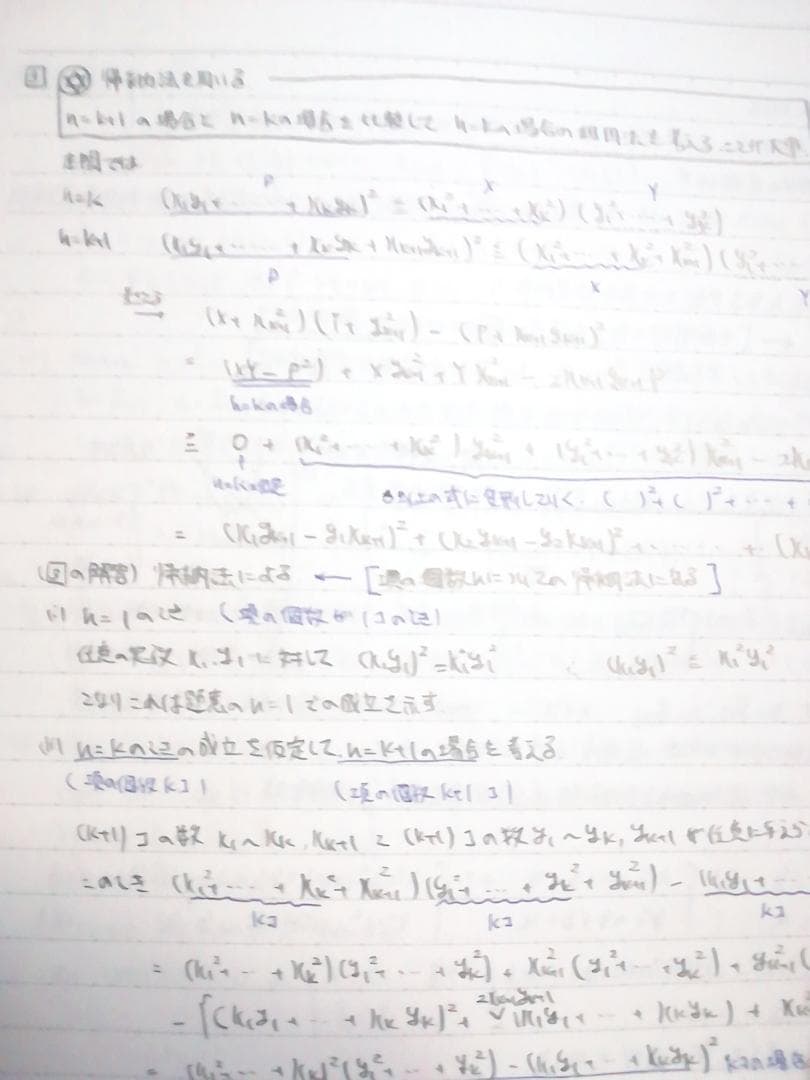 帰納法を用いる
n=k+1の場合と n=kの場合を比較して n=kの場合の利用法を考えることが大事
本問では
n=k (x₁y₁+……+xₖyₖ)² ≦ (x₁²+……+xₖ²)(y₁²+……+yₖ²)
n=k+1 (x₁y₁+……+xₖyₖ+xₖ₊₁yₖ₊₁)² ≦ (x₁²+…+xₖ²+xₖ₊₁²)(y₁²+…
(X+xₖ₊₁²)(Y+yₖ₊₁²)-(P+xₖ₊₁yₖ₊₁)²
= (XY-P²)+Xyₖ₊₁²+Yxₖ₊₁²-2xₖ₊₁yₖ₊₁P
n=kの場合
≧ 0+(x₁²+…+xₖ²)yₖ₊₁²+(y₁²+…+yₖ²)xₖ₊₁²-2x
n=kの仮定 0以上の式に変形していく. ( )²+( )²+…+
= (x₁yₖ₊₁-y₁xₖ₊₁)²+(x₂yₖ₊₁-y₂xₖ₊₁)²+……+(x
の解答) 帰納法による ← [項の個数nについての帰納法による]
(i) n=1のとき (項の個数が1コのとき)
任意の実数 x₁,y₁に対して (x₁y₁)²=x₁²y₁² ∴ (x₁y₁)²≦x₁²y₁²
となり これは題意の n=1での成立を示す
(ii) n=kのときの成立を仮定して, n=k+1の場合を考える.
(項の個数kコ) (項の個数k+1コ)
(k+1)コの数 x₁~xₖ, xₖ₊₁ と (k+1)コの数 y₁~yₖ, yₖ₊₁ が任意に与えら
このとき (x₁²+…+xₖ²+xₖ₊₁²)(y₁²+…+yₖ²+yₖ₊₁²)-(x₁y₁+…
kコ kコ kコ
= (x₁²+…+xₖ²)(y₁²+…+yₖ²)+xₖ₊₁²(y₁²+…+yₖ²)+yₖ₊₁²(
-{(x₁y₁+…+xₖyₖ)²+2xₖ₊₁yₖ₊₁(x₁y₁+…+xₖyₖ)+xₖ
= (x₁²+…+xₖ²)(y₁²+…+yₖ²)-(x₁y₁+…+xₖyₖ)² kコの場合